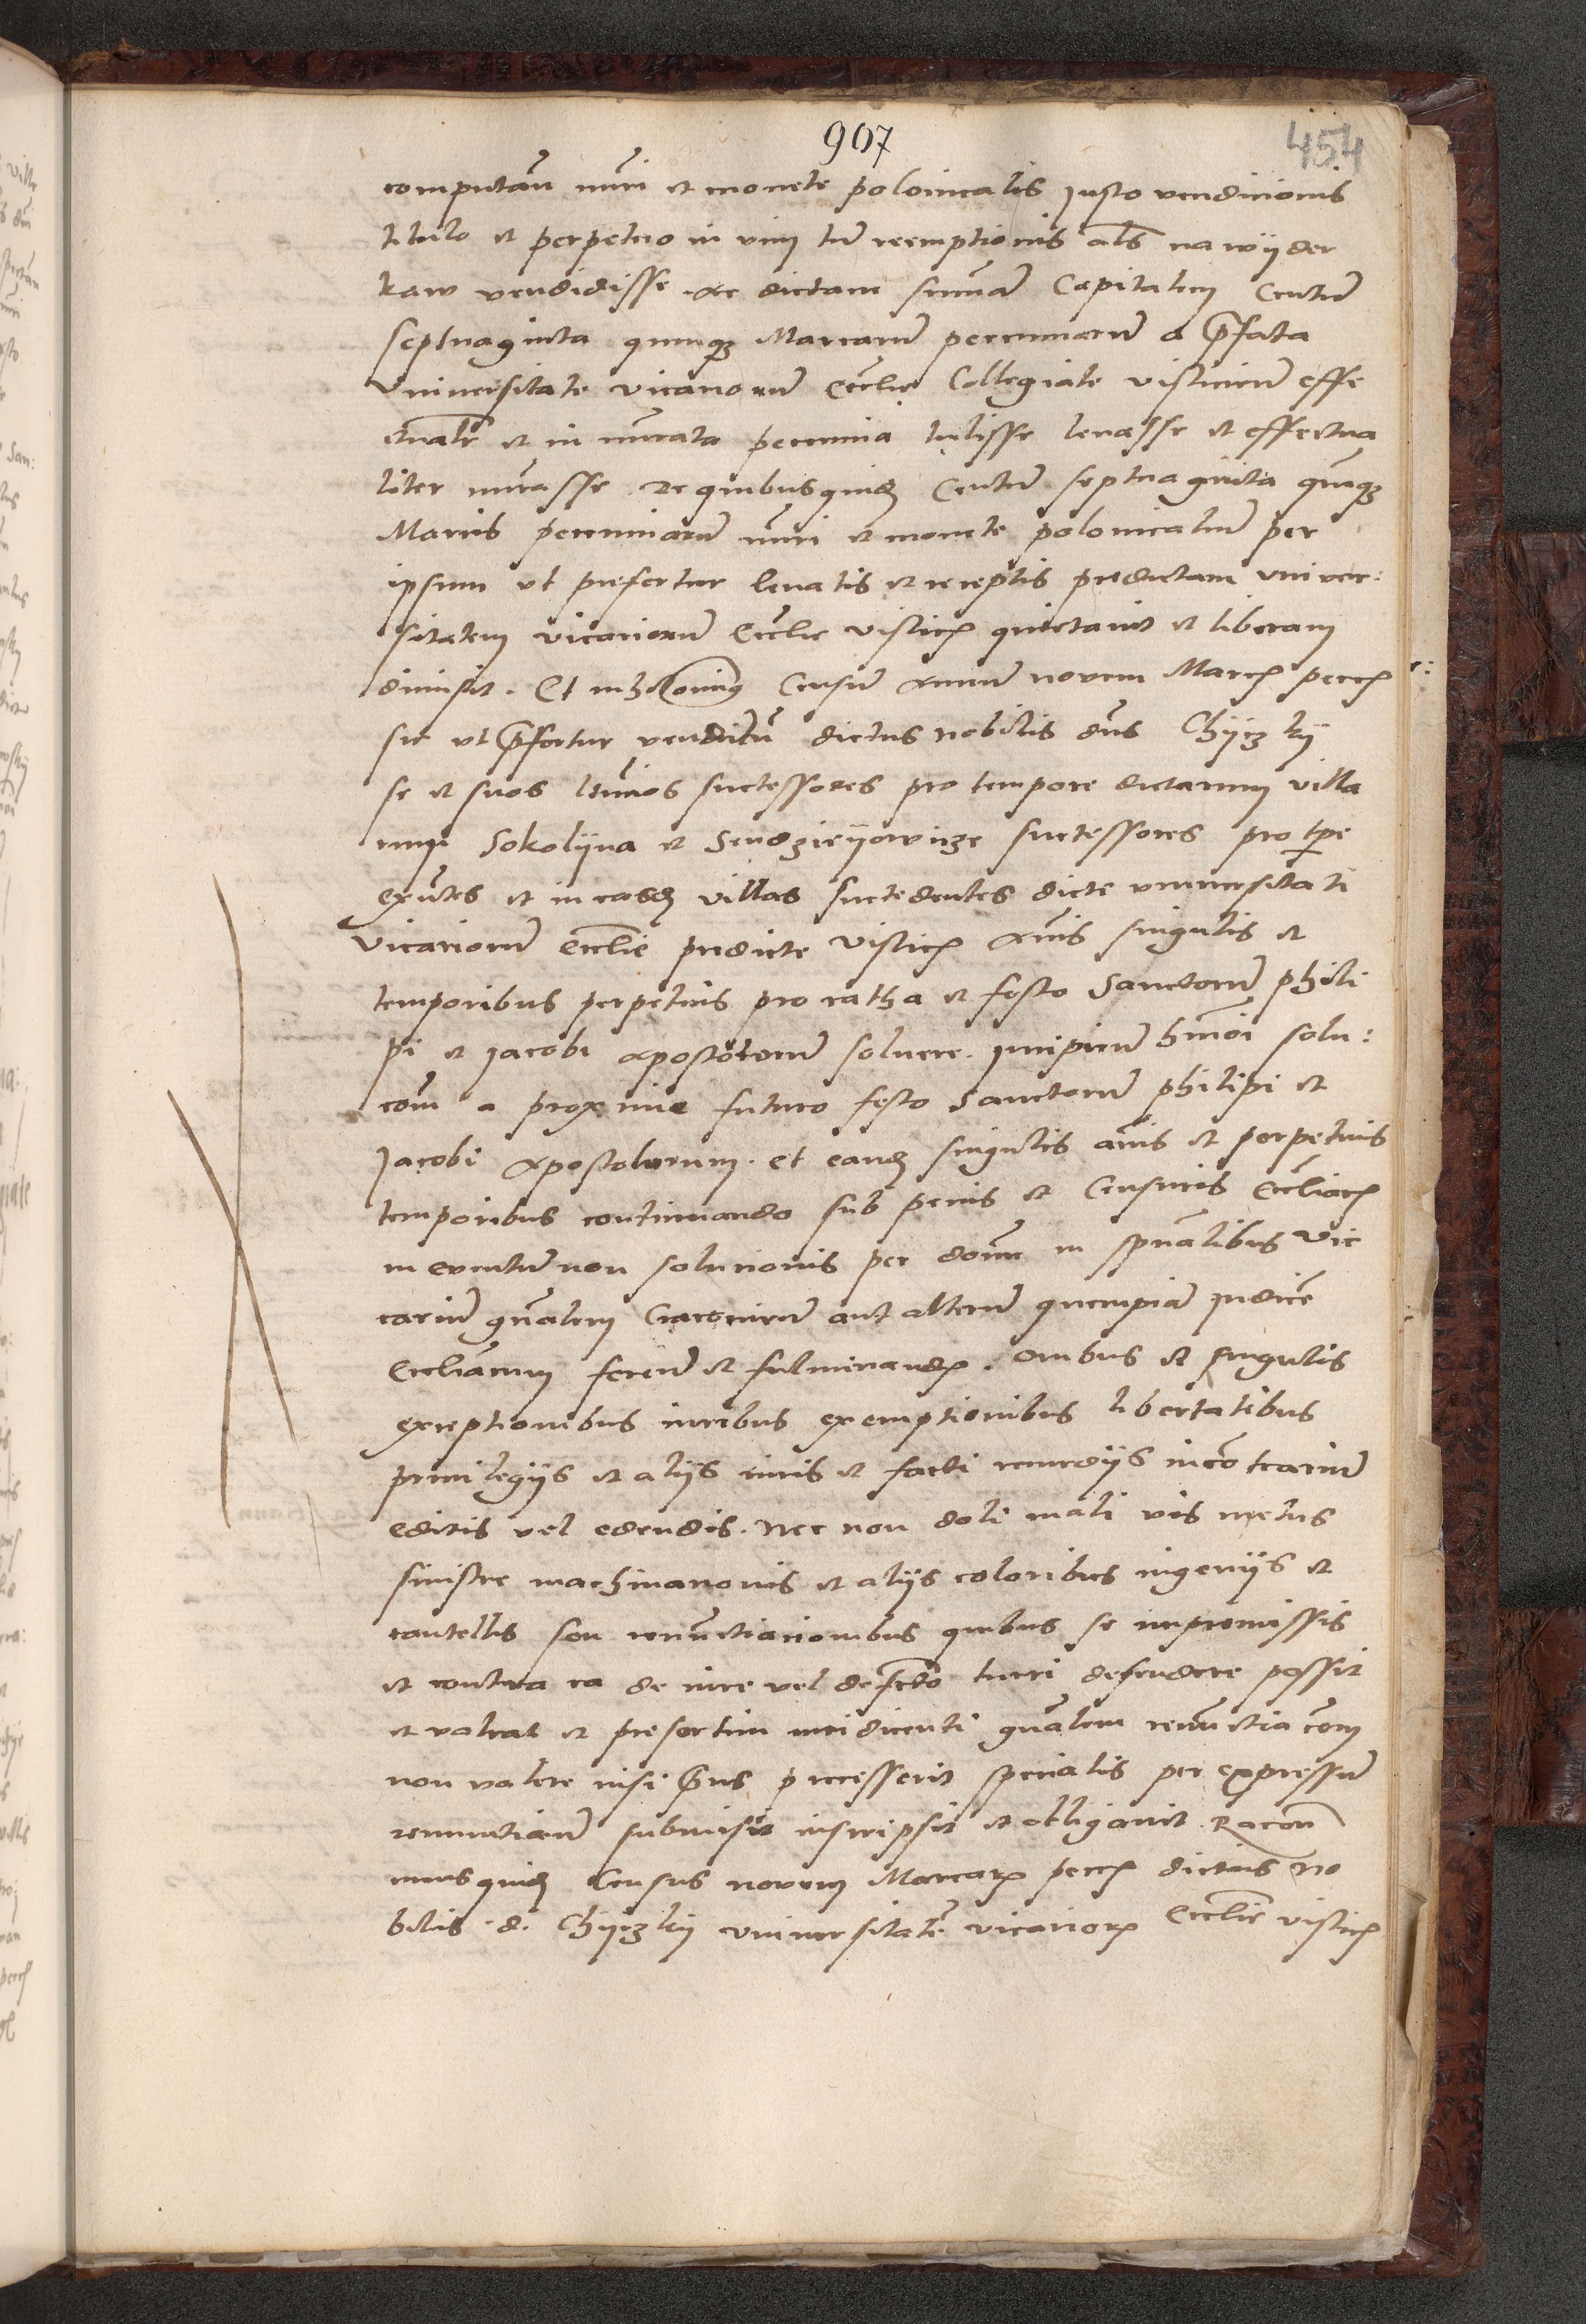 907
454
computan̄ num̄i et monete polonicalis Justo vendicionis
titulo et perpetuo in vim tn̄ reemptionis als̄ na wÿder
kaw vendidisse. Ac dictam sum̄ā Capitalem Centū
septuaginta quinqꝫ Marcarū pecuniarū a p̄fata
Vniversitate vicariorū Eccl̄ie Collegiate visliciēn effe
ctualr̄ et in nūerata pecunia tulisse levasse et effectua
liter nūerasse. De quibusquidē Centū septuaginta quinqꝫ
Marcis pecuniarū num̄i et monete polonicaliū per
ipsum vt prefertur levatis et receptis predictam vniver:
sitatem vicariorū Eccl̄ie vislicien̄ quietavit et liberam
dimisit. Et nihilominus Censū Annuū novem Marcar̄ pecc̄
sic vt p̄fertur venditū dictus nobilis dn̄s Chÿczkÿ
se et suos ltīmos successores pro tempore dictarum villa
rum Sokolÿna et Sendzieÿowicze successores pro tp̄re
exn̄tes et in easdē villas succedentes dicte vniuersitati
Vicariorū Eccl̄ie predicte Vislicien̄ Annis singulis et
temporibus perpetuis pro ratha et festo Sanctorū phili
pi et Jacobi Apostolorū soluere. Incipiendū hm̄oi solu:
com̄ a proxime futuro festo Sanctorū philipi et
Jacobi Apostolorum. et eandē singulis annis et perpetuis
temporibus continuando sub penis et Censuris Eccl̄iar̄
in eventū non solucionis per dom̄ in sp̄ualibus Vic
cariū gn̄alem Cracoviēn aut alterū quempiā Judicē
Eccl̄iarum ferend̄ et fulminandr̄. Om̄ibus et singulis
exceptionibus iuribus exemptionibus libertatibus
priuilegÿs et alÿs iuris et facti remedÿs in cōtrariū
editis vel edendis. Nec non doli mali vis metus
sinistre machinacionis et alÿs coloribus ingenÿs et
cautellis seu renūctiacionibus quibus se in premissis
et contra ea de iure vel de facto tueri defendere possit
et valeat et presertim iuri dicenti gn̄alem renūctiacōem
non valere nisi p̄us precesserit specialis per expressū
renunctiand̄ submisit inscripsit et obligavit. Racōn
cuiusquidē Census novem Marcar̄ pecc̄ dictus No
bilis .d. Chÿczkÿ vniuersitatē vicarior̄ Eccl̄ie vislicien̄